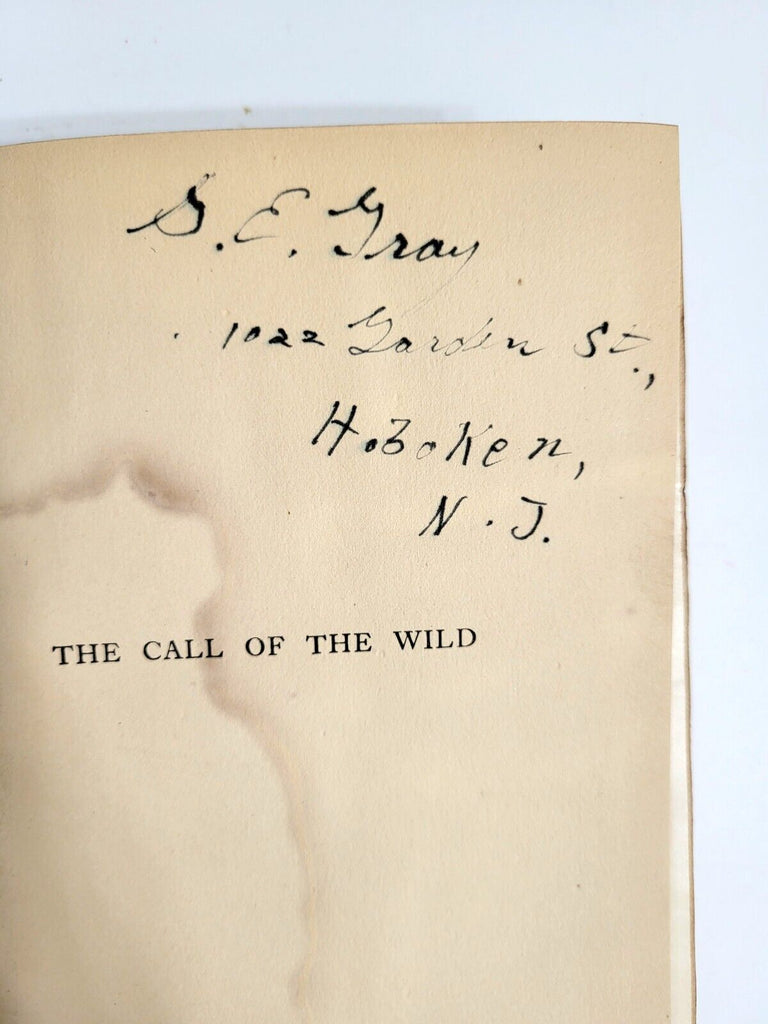 S. E. Gray
1022 Garden St.,
Hoboken,
N. J.
THE CALL OF THE WILD